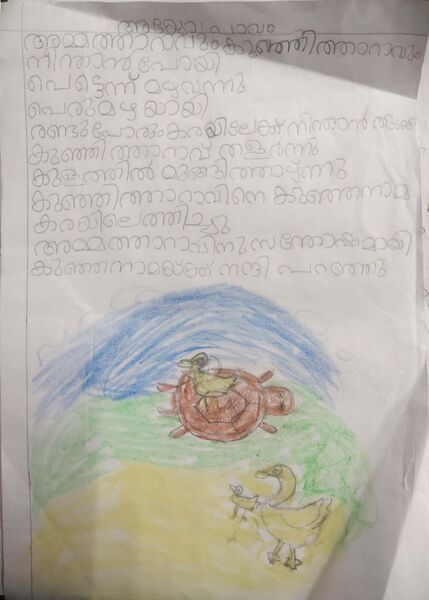 അയ്യോ! പാവം
അമ്മത്താറാവും കുഞ്ഞിത്താറാവും
നീന്താൻ പോയി
പെട്ടെന്ന് മഴവന്നു
പെരുമഴയായി
രണ്ടുപേരുംകരയിലേക്ക് നീന്താൻ തുടങ്ങി
കുഞ്ഞിത്താറാവ് തളർന്നു
കുളത്തിൽ മുങ്ങിത്താഴ്ന്നു
കുഞ്ഞിത്താറാവിനെ കുഞ്ഞനാമ
കരയിലെത്തിച്ചു
അമ്മത്താറാവിനു സന്തോഷമായി
കുഞ്ഞനാമയ്ക്ക് നന്ദി പറഞ്ഞു